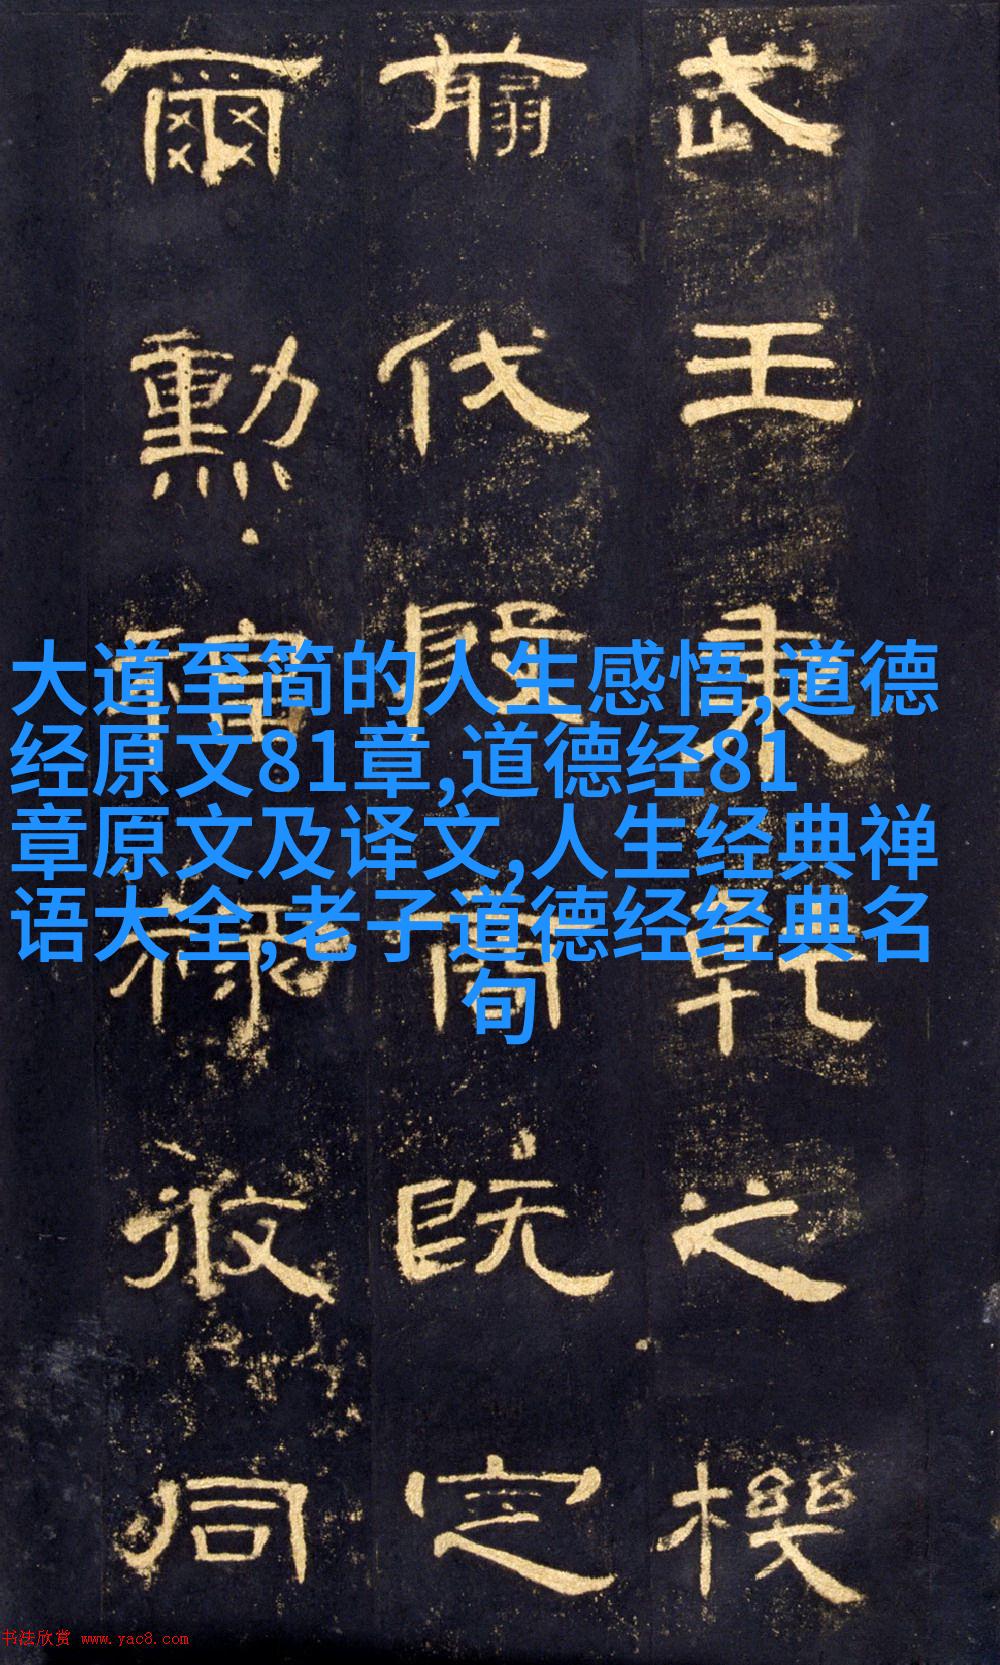 武王秉乾之機
翦伐殷商既定
爾勲福祿攸同
大道至简的人生感悟,道德
经原文81章,道德经81
章原文及译文,人生经典禅
语大全,老子道德经经典名
句
书法欣赏 www.yac8.com